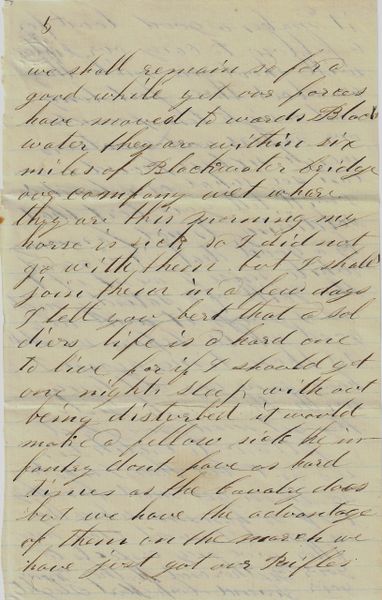 5
we shall remain so for a
good while yet our forces
have moved to wards Black
water they are within six
miles of Blackwater bridge
our company went where
they are this morning my
horse is sick so I did not
go with them but I shall
join them in a few days
I tell you bert that a sol
diers life is a hard one
to live for if I should get
one nights sleep with out
being disturbed it would
make a fellow sick the in
fantry dont have as hard
times as the Cavalry does
but we have the advantage
of them on the march we
have just got our Rifles